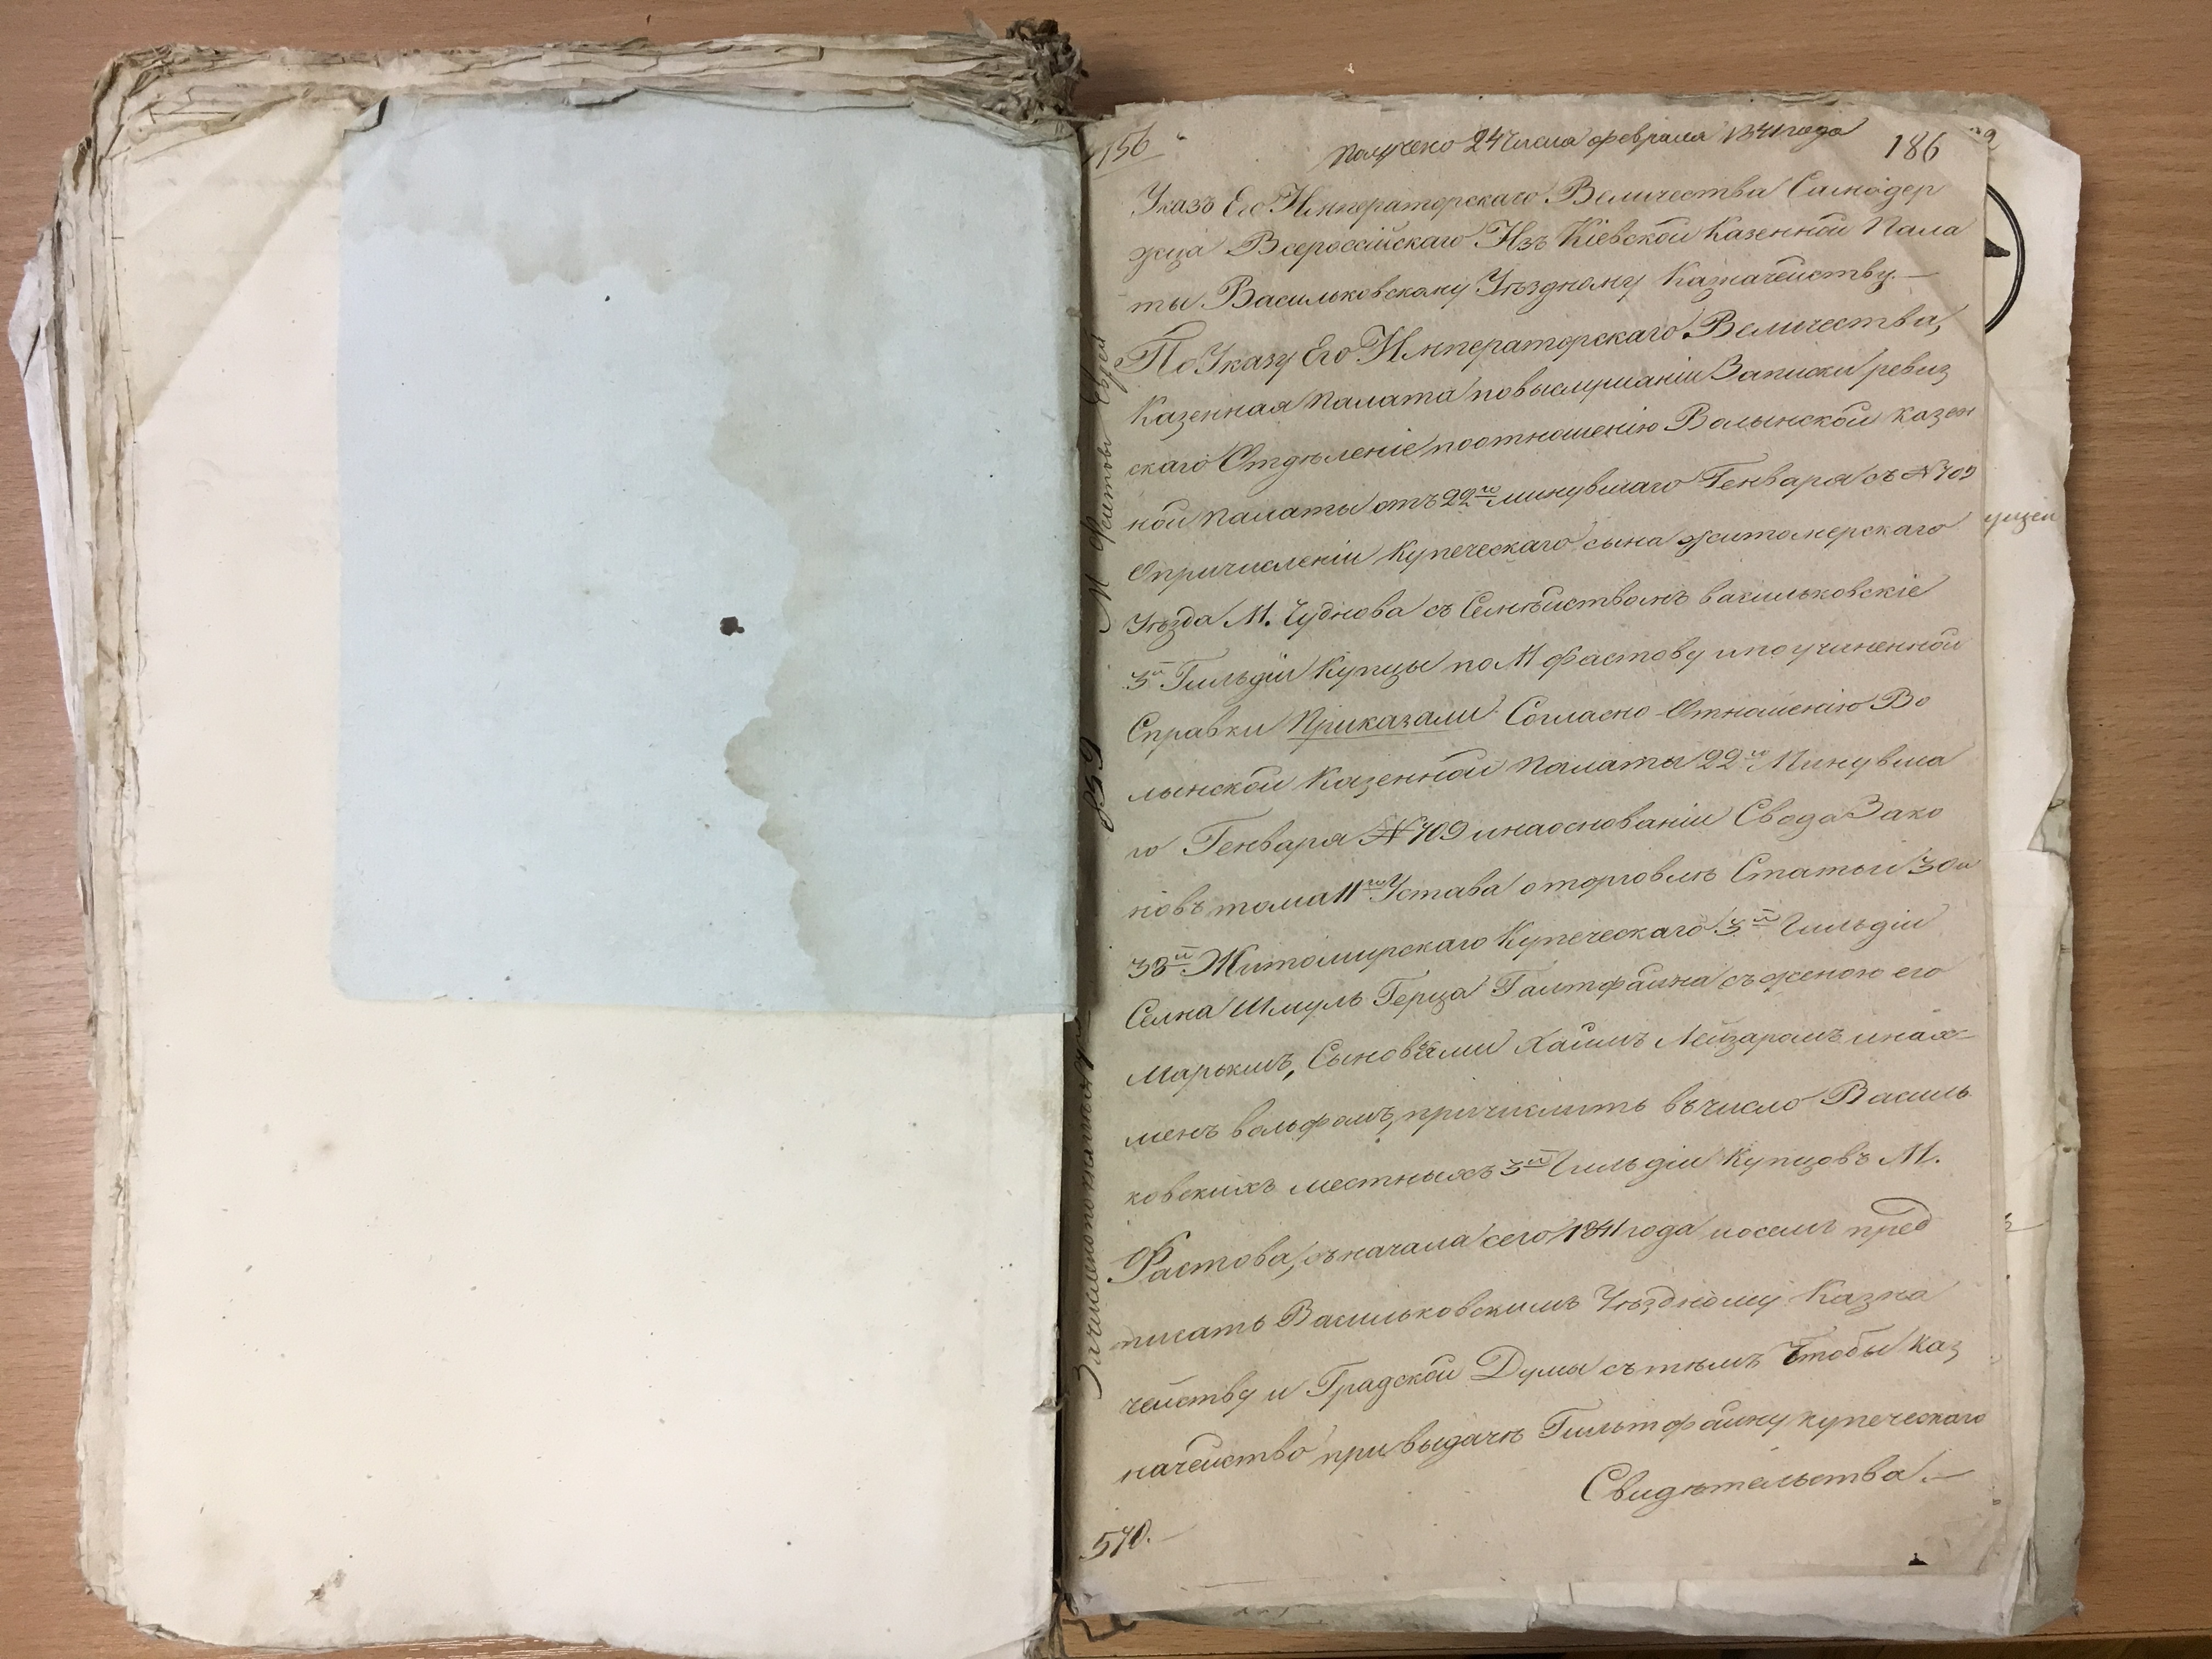 156
Получено 24 числа февраля 1841 года
186
Указъ Его Императорскаго Величества Самодер
жца Всероссійскаго Изъ Кіевской Казенной Пала
ты Васильковскому Уѣздному Казначейству.—
По Указу Его Императорскаго Величества,
Казенная Палата повыслушаніи Записки ревиз
скаго Отдѣленіе поотношенію Волынской казен
ной палаты отъ 22го минувшаго Генваря съ № 709
Опричисленіи Купеческаго сына житомерскаго
Уѣзда М. Чуднова съ Семѣйствомъ васильковскіе
3й Гильдіи Купцы по М Фастову ипоучиненной
Справки Приказали Согласно Отношенію Во
лынской Казенной палаты 22го Минувша
го Генваря № 709 инаоснованіи Свода Зако
новъ тома 11го Устава о торговлѣ Статьи 30и
38й Житомирскаго Купеческаго 3й Гильдіи
Селна Шмуль Герца Гамтфаина съ женою его
Марькимъ, Сыновями Хаимъ Лейзаромъ инах
менъ вольфомъ, причислить въ число Василь
ковскихъ местныхъ 3й Гильдіи Купцовъ М.
Фастова, съ начала сего 1841 года, иосемъ пред
писать Васильковскимъ Уѣздному Казна
чейству и Градской Думы съ тѣмъ Чтобы Каз
начейство при выдачѣ Гильтфаину купеческаго
Свидѣтельства.—
570.—
859 М Фастовы Еврей